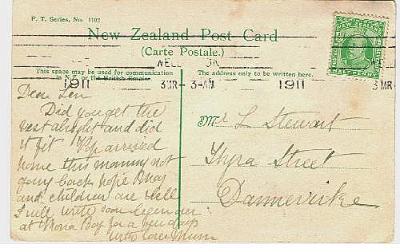 P. T. Series, No. 1102
New Zealand Post Card
(Carte Postale.)
This space may be used for communication
The address only to be written here.
1911
3 MR
3-AM
1911
3 MR
Dear Len
Did you get the
vest alright and did
it fit
arrived
home this morning not
going back hope
and children are well
I will write soon
at Bay for a few days
with love Mum
Mr L Stewart
Thyra Street
Dannevirke